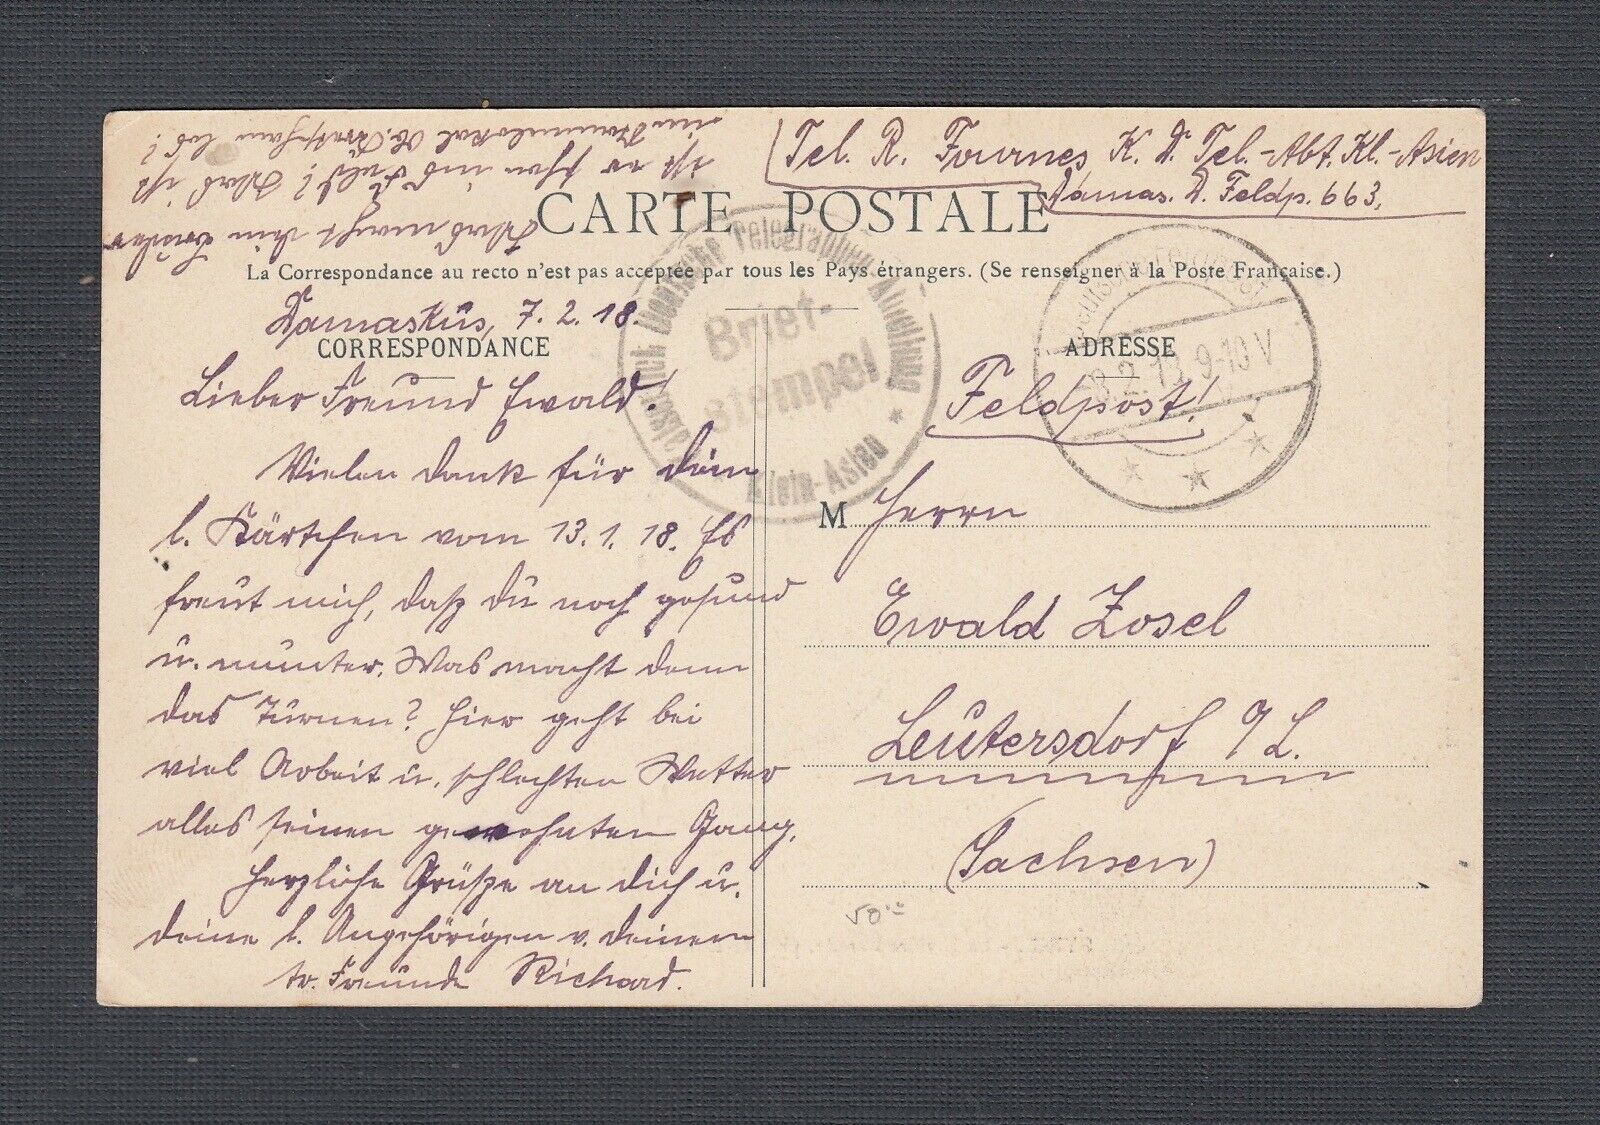 Tel. R. Fournes K. D. Tel.-Abt. Kl.-Asien
Damas. D. Feldp. 663.
CARTE POSTALE
La Correspondance au recto n'est pas acceptée par tous les Pays étrangers. (Se renseigner à la Poste Française.)
Damaskus, 7. 2. 18.
CORRESPONDANCE
Lieber Freund Ewald!
Vielen Dank für Dein
l. Kärtchen vom 13. 1. 18. Es
freut mich, daß Du noch gesund
u. munter. Was macht denn
das Turnen? Hier geht bei
viel Arbeit u. schlechten Wetter
alles seinen gewohnten Gang.
Herzliche Grüße an Dich u.
Deine l. Angehörigen v. Deinem
tr. Freunde Richard.
Was macht Dein Bruder
ist er schon im Feld? Was ist
im
los?
Deutsche Telegraphen-Abteilung
Klein-Asien
Brief-
stempel
ADRESSE
8.2.18 9-10 V
Feldpost!
M Herrn
Ewald Zosel
Leutersdorf O/L.
(Sachsen)
50